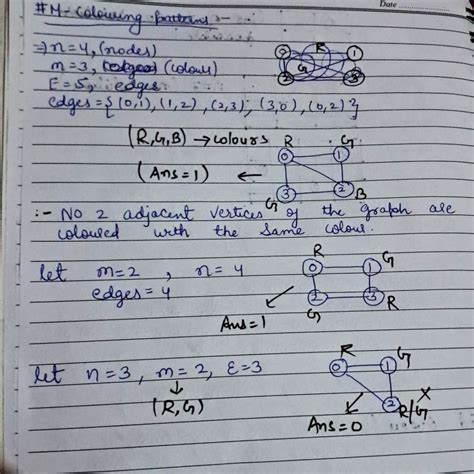 Date
# M-Colouring Pattern :-
=> n=4, (nodes)
m=3, (colour)
E=5, edges
edges = { (0,1), (1,2), (2,3), (3,0), (0,2) }
R
G
0 1
2 3
(R,G,B) → colours
(Ans=1) ←
R G
0 1
3 2
G B
:- No 2 adjacent vertices of the graph are
coloured with the same colour.
let m=2, n=4
edges=4
R G
0 1
2 3
G R
Ans=1
let n=3, m=2, E=3
(R,G)
R G
0 1
2
R/G X
Ans=0